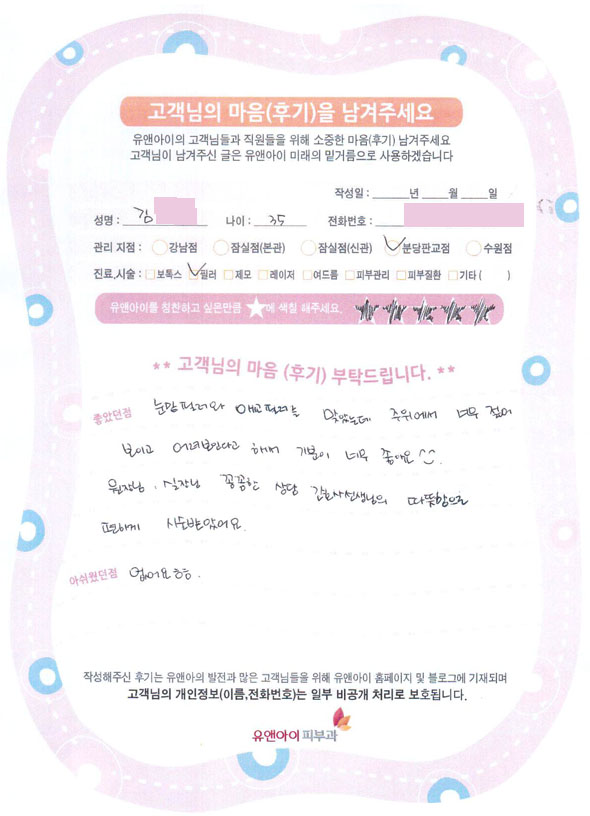 고객님의 마음(후기)을 남겨주세요
유앤아이의 고객님들과 직원들을 위해 소중한 마음(후기) 남겨주세요
고객님이 남겨주신 글은 유앤아이 미래의 밑거름으로 사용하겠습니다
작성일 : 년 월 일
성명 : 김 나이 : 35 전화번호 :
관리 지점 : 강남점 잠실점(본관) 잠실점(신관) 분당판교점 수원점
진료,시술 : 보톡스 필러 제모 레이저 여드름 피부관리 피부질환 기타 ( )
유앤아이를 칭찬하고 싶은만큼 ★에 색칠 해주세요.
** 고객님의 마음 (후기) 부탁드립니다. **
좋았던점 눈밑필러와 애교필러를 맞았는데 주위에서 너무 젊어
보이고 어려보인다고 해서 기분이 너무 좋아요
원장님, 실장님 꼼꼼한 상담 간호사선생님의 따뜻함으로
편하게 시술받았어요.
아쉬웠던점 없어요 ㅎㅎ.
작성해주신 후기는 유앤아의 발전과 많은 고객님들을 위해 유앤아이 홈페이지 및 블로그에 기재되며
고객님의 개인정보(이름,전화번호)는 일부 비공개 처리로 보호됩니다.
유앤아이피부과